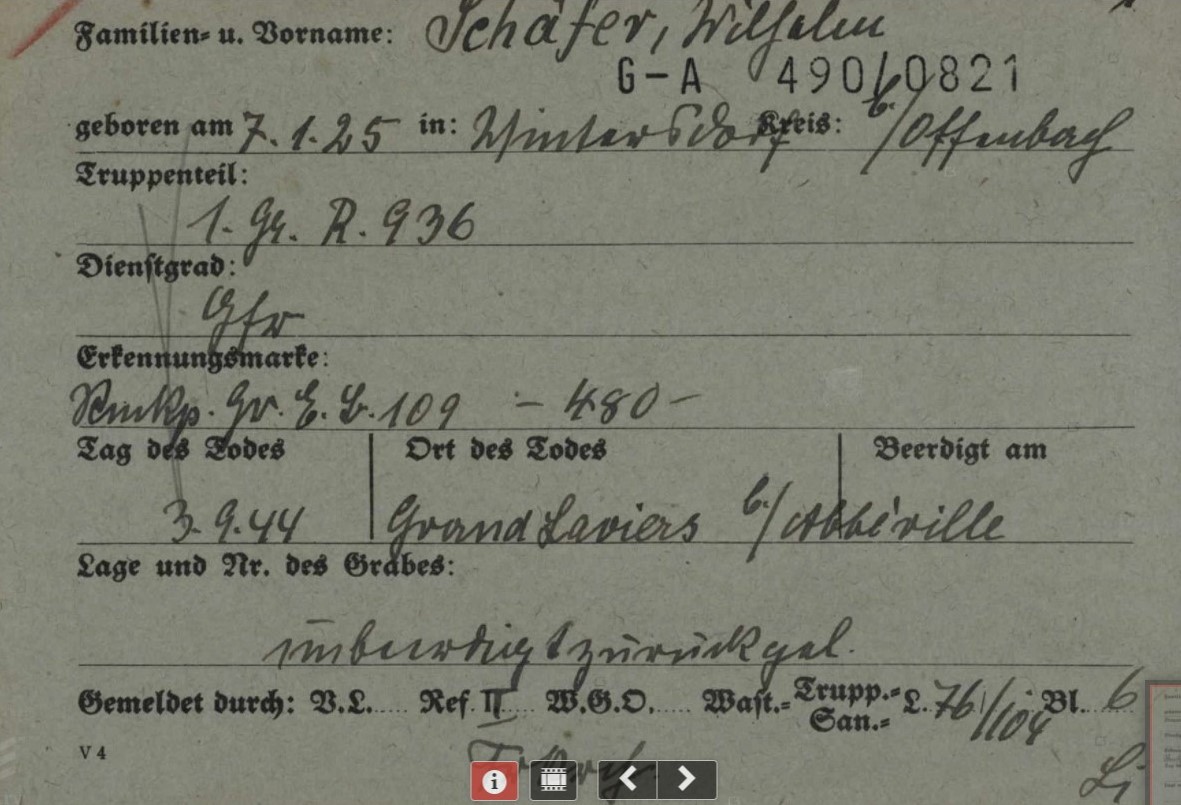 Familien- u. Vorname: Schäfer, Wilhelm
G-A 490/0821
geboren am 7.1.25 in: Wintersdorf Kreis: b./Offenbach
Truppenteil:
1. Gr. R. 936
Dienstgrad:
Gfr
Erkennungsmarke:
Gr. E. B. 109 - 480 -
Tag des Todes Ort des Todes Beerdigt am
3.9.44 Grand Laviers b./Abbéville
Lage und Nr. des Grabes:
unbeerdigt zurückgel.
Gemeldet durch: V.L..... Ref. II... W.G.O..... Wast.- Trupp.- San.- L. 76/104 Bl. 6
V 4